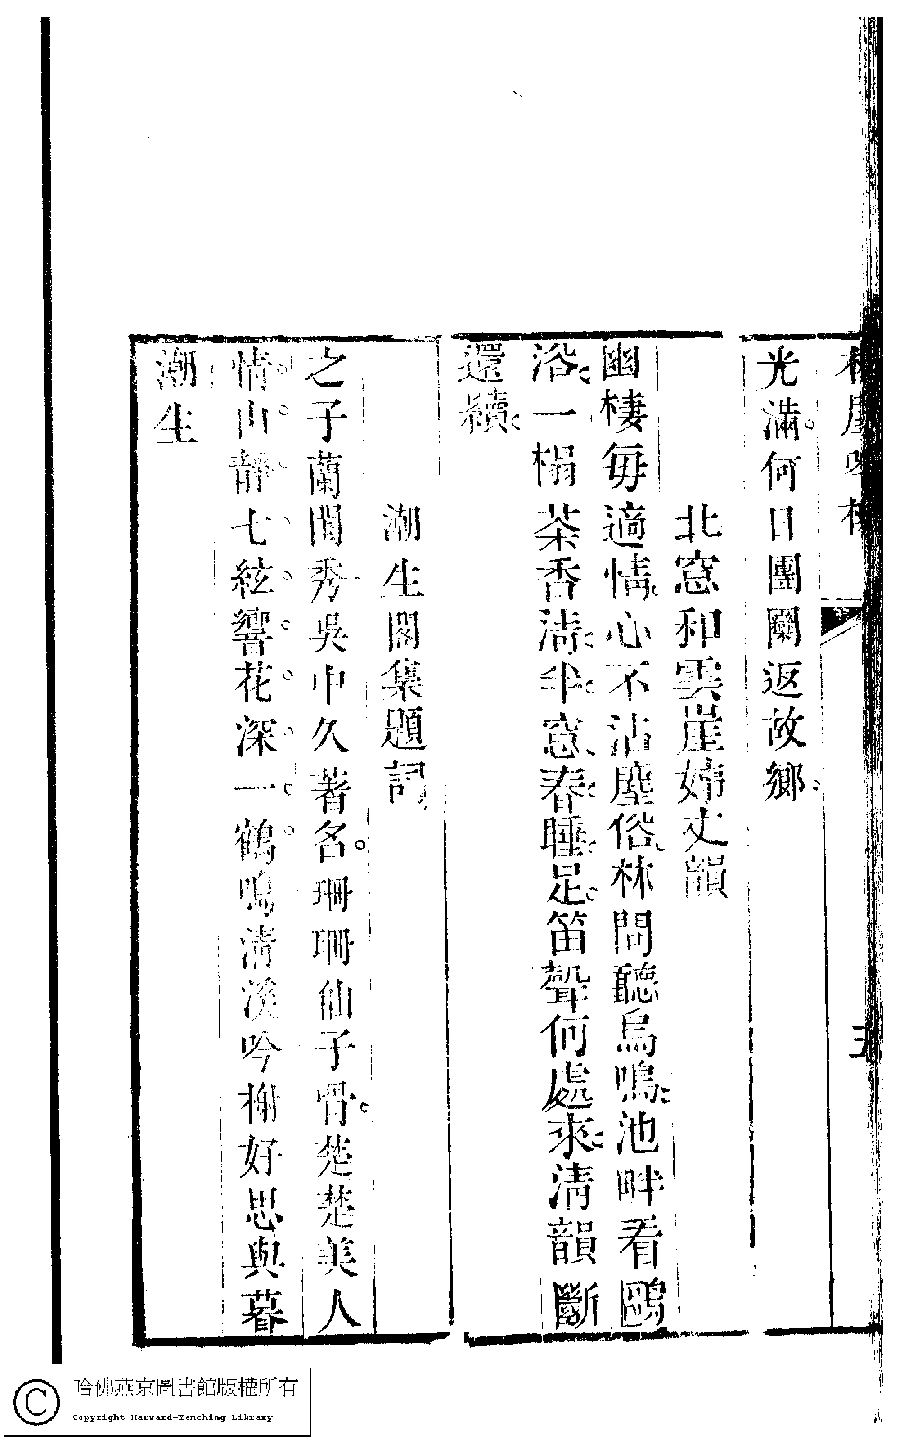 光滿何日團圞返故鄉
北窓和雲崖姊丈韻
幽棲每適情心不沾塵俗林間聽鳥鳴池畔看鷗
浴一榻茶香淸半窓春睡足笛聲何處來淸韻斷
還續
潮生閣集題詞
之子蘭閨秀吳中久著名珊珊仙子骨楚楚美人
情山靜七絃響花深一鶴鳴淸溪吟榭好思與暮
潮生
五
哈佛燕京圖書館版權所有
Copyright Harvard-Yenching Library